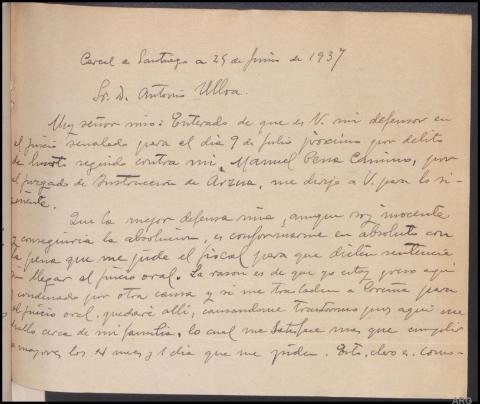 Carcel de Santiago a 25 de Junio de 1937
Sr. D. Antonio Ulloa.
Muy señor mio: Enterado de que es V. mi defensor en
el juicio señalado para el dia 9 de julio próximo por delito
de hurto seguido contra mi, Manuel Pena Camino, por
el juzgado de Instrucción de Arzua, me dirijo a V. para lo si-
guiente.
Que la mejor defensa mia, aunque soy inocente
y conseguiria la absolución, es conformarme en absoluto con
la pena que me pide el fiscal para que dicten sentencia
sin llegar al juicio oral. La razon es de que yo estoy preso aqui
y condenado por otra causa y si me trasladan a Coruña para
el juicio oral, quedaré alli, causandome trastornos pues aqui me
hallo cerca de mi familia, lo cual me satisface mas que cumplir
a mayores los 4 meses y 1 dia que me piden. Esto, claro es, como-
ARG